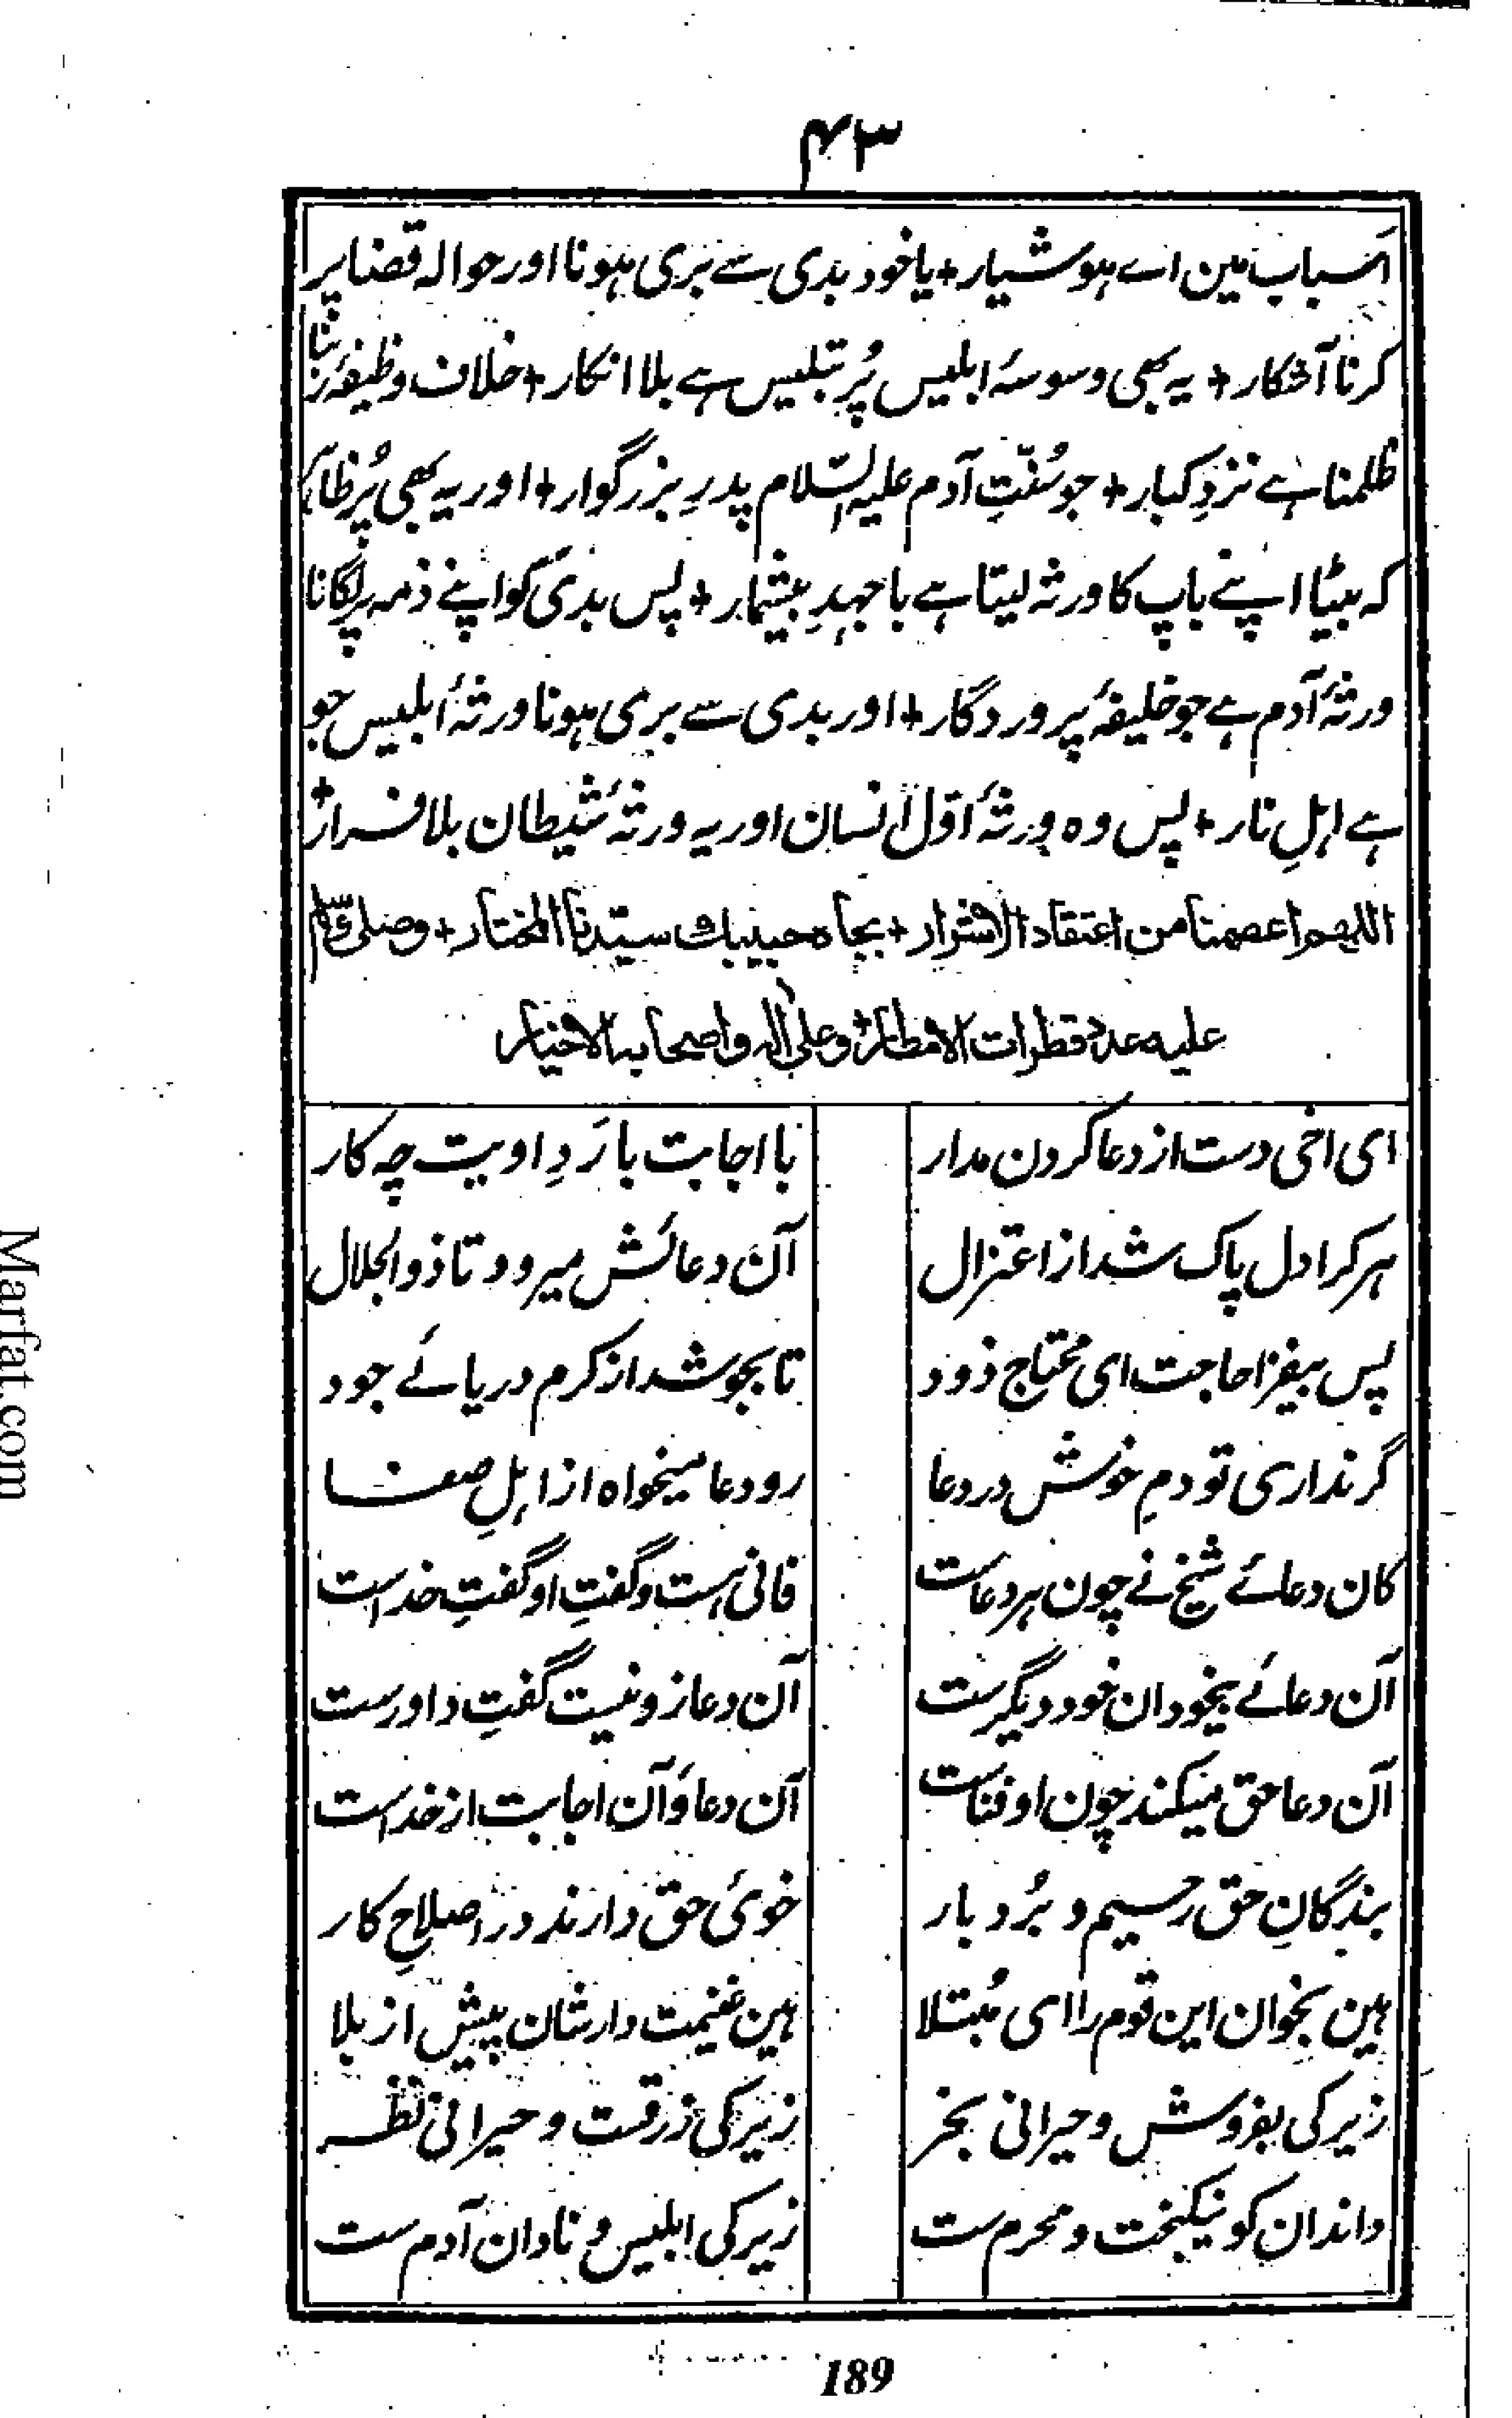 ۴۳
اسباب مین اے ہوشیار + یا خود بدی سے بری ہونا اور حوالہ قضا پر
کرنا آشکار + یہ بھی وسوسۂ ابلیس پُر تبلیس ہے بلا انکار + خلاف وظیفۂ ربنا
ظلمنا ہے نزدِ کبار + جو سُنّتِ آدم علیہ السّلام پدرِ بزرگوار + اور یہ بھی پُر ظاہر
کہ بیٹا اپنے باپ کا ورثہ لیتا ہے با جہدِ بیشمار + پس بدی کو اپنے ذمہ پر لگانا
ورثۂ آدم ہے جو خلیفۂ پروردگار + اور بدی سے بری ہونا ورثۂ ابلیس جو
ہے اہلِ نار + پس وہ ورثۂ اوّل انسان اور یہ ورثۂ شیطان بلا فرار +
اللهم اعصمنا من اعتقاد الاشرار + بجاه حبیبك سیّدنا المختار + وصلی وسلم
علیہ عدد قطرات الامطار + وعلیٰ الہ واصحابہ الاخیار
ای اخی دست از دعا کردن مدار با اجابت یا رَدِ اویت چہ کار
ہر کرا دل پاک شد از اعتزال آن دعائش میرود تا ذوالجلال
پس بیفزا حاجت ای محتاج زود تا بجوشد از کرم دریائے جود
گر نداری تو دمِ خوش در دعا رو دعا میخواہ از اہلِ صفا
کان دعائے شیخ نے چون ہر دعاست فانی است و گفتِ او گفتِ خداست
آن دعائے بیخودان خود دیگرست آن دعا زو نیست گفتِ داورست
آن دعا حق میکند چون او فناست آن دعا و آن اجابت از خداست
بندگانِ حق رحیم و بُردبار خوئ حق دارند در اصلاحِ کار
ہین بخوان این قوم را ای مُبتلا ہین غنیمت دارشان پیش از بلا
زیرکی بفروش و حیرانی بخر زیرکی زرقست و حیرانی نظر
داند آن کو نیکبخت و محرم ست زیرکی ابلیس و نادان آدم ست
189
Marfat.com